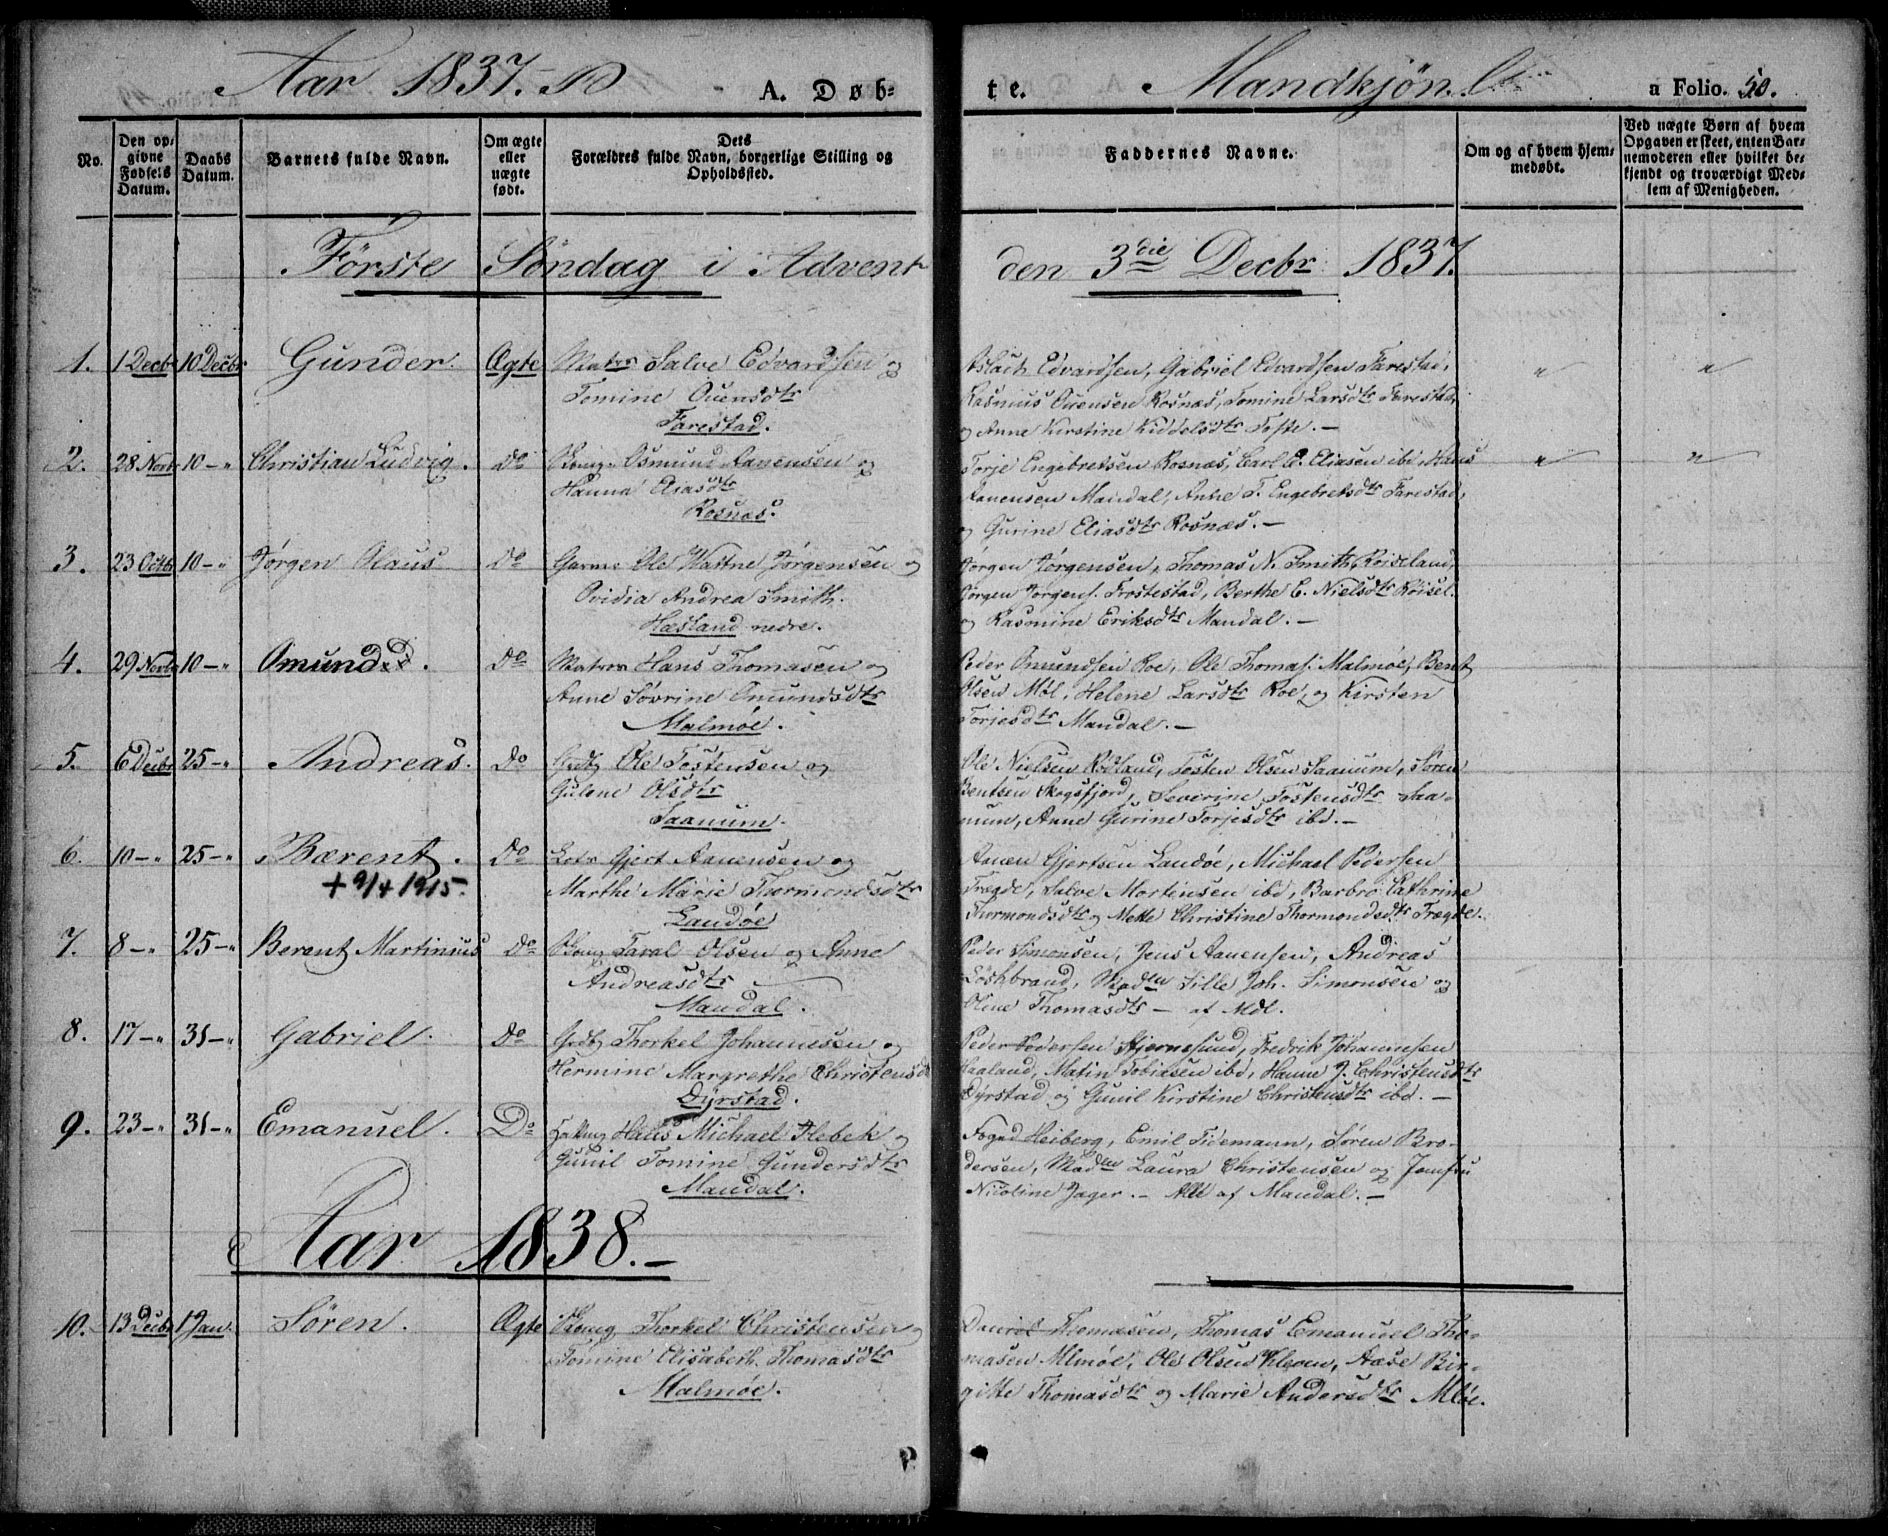 Aar 1837. A. Døb-
te. Mandkjön. a Folio. 50.
No.
Den op-
givne
Fødsels
Datum.
Daabs
Datum.
Barnets fulde Navn.
Om ægte
eller
uægte
født.
Dets
Forældres fulde Navn, borgerlige Stilling og
Opholdssted.
Faddernes Navne.
Om og af hvem hjem-
medøbt.
Ved uægte Børn af hvem
Opgaven er skeet, enten Bar-
nemoderen eller hvilket be-
kjendt og troværdigt Med-
lem af Menigheden.
Förste Söndag i Advent den 3die Decbr 1837.
1. 1 Decbr 10 Decbr Gunder. Ægte Matrs Salve Edvardsen og
Tomine Ouensdtr
Farestad.
Aslach Edvardsen, Gabriel Edvardsen Farestad,
Rasmus Ouensen Rosnæs, Tomine Larsdtr Farestad,
og Anne Kirstine Kiddelsdtr Tofte. —
" "
2. 28 Novbr 10 — " Christian Ludvig. Do Osmund Aanensen og
Hanna Eliasdtr
Rosnæs.
Torje Engebretsen Rosnæs, Carl E. Eliasen ibd, Hans
Aanensen Mandal, Anne T. Engebretsdtr Farestad,
og Gurine Eliasdtr Rosnæs. —
" "
3. 23 Octbr 10 — " Jørgen Olaus Do Ole Jørgensen og
Ovidia Andrea Smith.
Hæsland nedre.
Jørgen Jørgensen, Thomas N. Smith, Röiseland,
Jørgen Jørgens. Frostestad, Berthe E. Nielsdtr Röisel.
og Rasmine Eriksdtr Mandal. —
4. 29 Novbr 10 — " Omund. Do Matros Hans Thomasen og
Anne Sövrine Omundsdtr
Malmöe.
Peder Omundsen Roe, Ole Thomas. Malmöe, Bent
Olsen Möl, Helene Larsdtr Roe, og Kirsten
Torjesdtr Mandal. —
5. 6 Decbr 25 — " Andreas. Do Ole Tostensen og
Gulene Olsdtr
Saanum.
Ole Nielsen Rödland, Tosten Olsen Saanum, Sören
Bentsen Skogsfjord, Severine Tostensdtr Saa-
num, Anne Gurine Torjesdtr ibd. —
6. 10 — " 25 — " Bærent. Do Lods Gjert Aanensen og
+ 9/4 1915.
Marthe Marie Thormondsdtr
Landöe
Aanen Gjertsen Landöe, Michael Pedersen
Trægde, Salve Mortensen ibd, Barbro Cathrine
Thormondsdtr og Mette Christine Thormondsdtr Trægde.
7. 8 — " 25 — " Berent Martinius Do Taral Olsen og Anne
Andreasdtr
Mandal.
Peder Simonsen, Jens Aanensen, Andreas
Löshbrand, Madm Sille Joh. Simonsen og
Oline Thomasdtr — af Mdl.
8. 17 — " 31 — " Gabriel. Do Thorkel Johannesen og
Hermine Margrethe Christensd
Dyrstad.
Peder Pedersen Hjernesund, Fredrik Johannesen
Haaland, Matin Tobiasen ibd, Hanne J. Christensdtr
Dyrstad og Gunil Kirstine Christensdtr ibd. —
9. 23 — " 31 — " Emanuel. Do Hans Michael Flebek og
Gunil Tomine Gundersdtr
Mandal.
Foged Heiberg, Emil Tidemann, Sören Bro-
dersen, Madm Laura Christensen og Jomfru
Nicoline Jager. — Alle af Mandal. —
Aar 1838. —
10. 13 Decbr 1 Jan. Sören. Ægte Thorkel Christensen og
Tomine Elisabeth Thomasdtr
Malmöe.
Daniel Thomasen, Thomas Emanuel Tho-
masen Mlmöe, Ole Olsen Kleven, Aase Bir-
gitte Thomasdtr og Marie Andersdtr Mlöe.